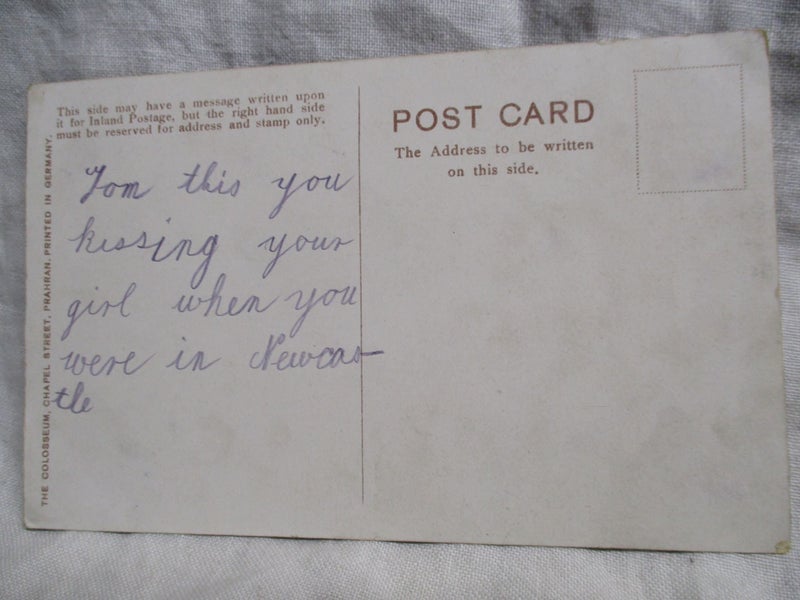 This side may have a message written upon
it for Inland Postage, but the right hand side
must be reserved for address and stamp only.
Tom this you
kissing your
girl when you
were in Newcas-
tle
THE COLOSSEUM, CHAPEL STREET, PRAHRAN. PRINTED IN GERMANY.
POST CARD
The Address to be written
on this side.